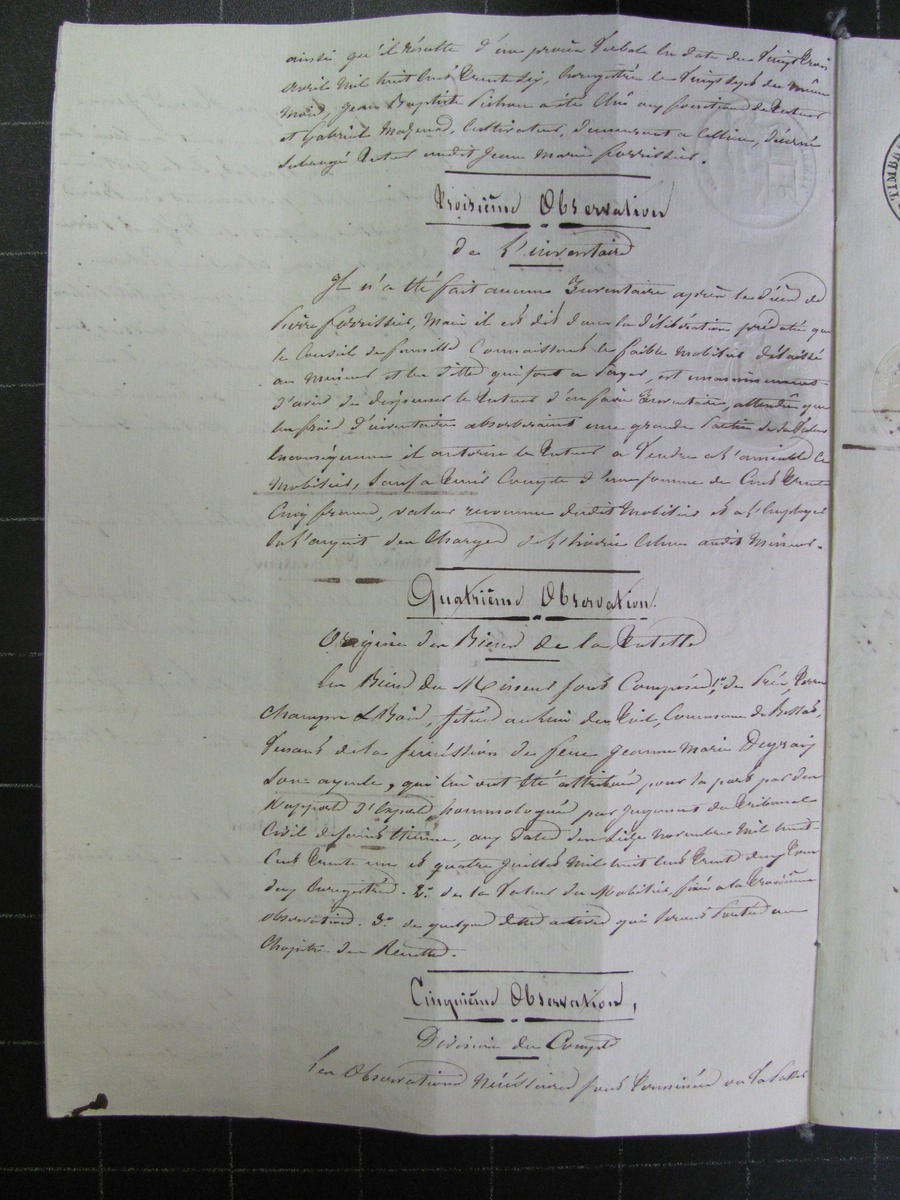 ainsi qu'il résulte d'un procès verbal en date du vingt trois
avril mil huit cent trente six, enregistré le vingt sept du même
mois, Jean Baptiste Pichon a été élu aux fonctions de tuteur
et Gabriel Mazenod, cultivateur, demeurant a, décerné
subrogé tuteur audit Jean Marie forrissier.
Troisième Observation
de L'inventaire
Il n'a été fait aucun Inventaire après le décès de
Pierre forrissier, mais il est dit dans la délibération prédatée que
le Conseil de famille Connaissant le faible mobilier délaissé
au mineur et les dettes qui sont a payer, est unanimement
d'avis de dispenser le tuteur d'en faire Inventaire, attendu que
les frais d'inventaire absorberaient une grande partie de sa valeur
En conséquence il autorise le tuteur a vendre a l'amiable ce
mobilier, sauf a tenir Compte d'une somme de Cent trente
Cinq francs, valeur reconnue dudit mobilier et a l'employer
en l'acquit des charges de l'hoirie échue audit mineur.
Quatrième Observation.
Origine des Biens de la tutelle
Les Biens du Mineur sont Composés, 1° de Prés, terres
Champs & Bois, situés au lieu du, Commune de
venant de la succession de feue Jeanne Marie
son ayeule, qui lui ont été attribués pour sa part par des
rapports d'experts, hommologués par jugements du tribunal
Civil de saint Etienne, aux dates des seize novembre mil huit
Cent trente un et quatre juillet mil huit cent trente deux tous
deux enregistrés. 2° de la valeur du mobilier, fixée a la troisième
observation. 3° de quelques dettes actives qui seront portées au
chapitre des Recettes.
Cinquième Observation,
Division du Compte
Les Observations nécessaires sont terminées on va passer
TIMBR